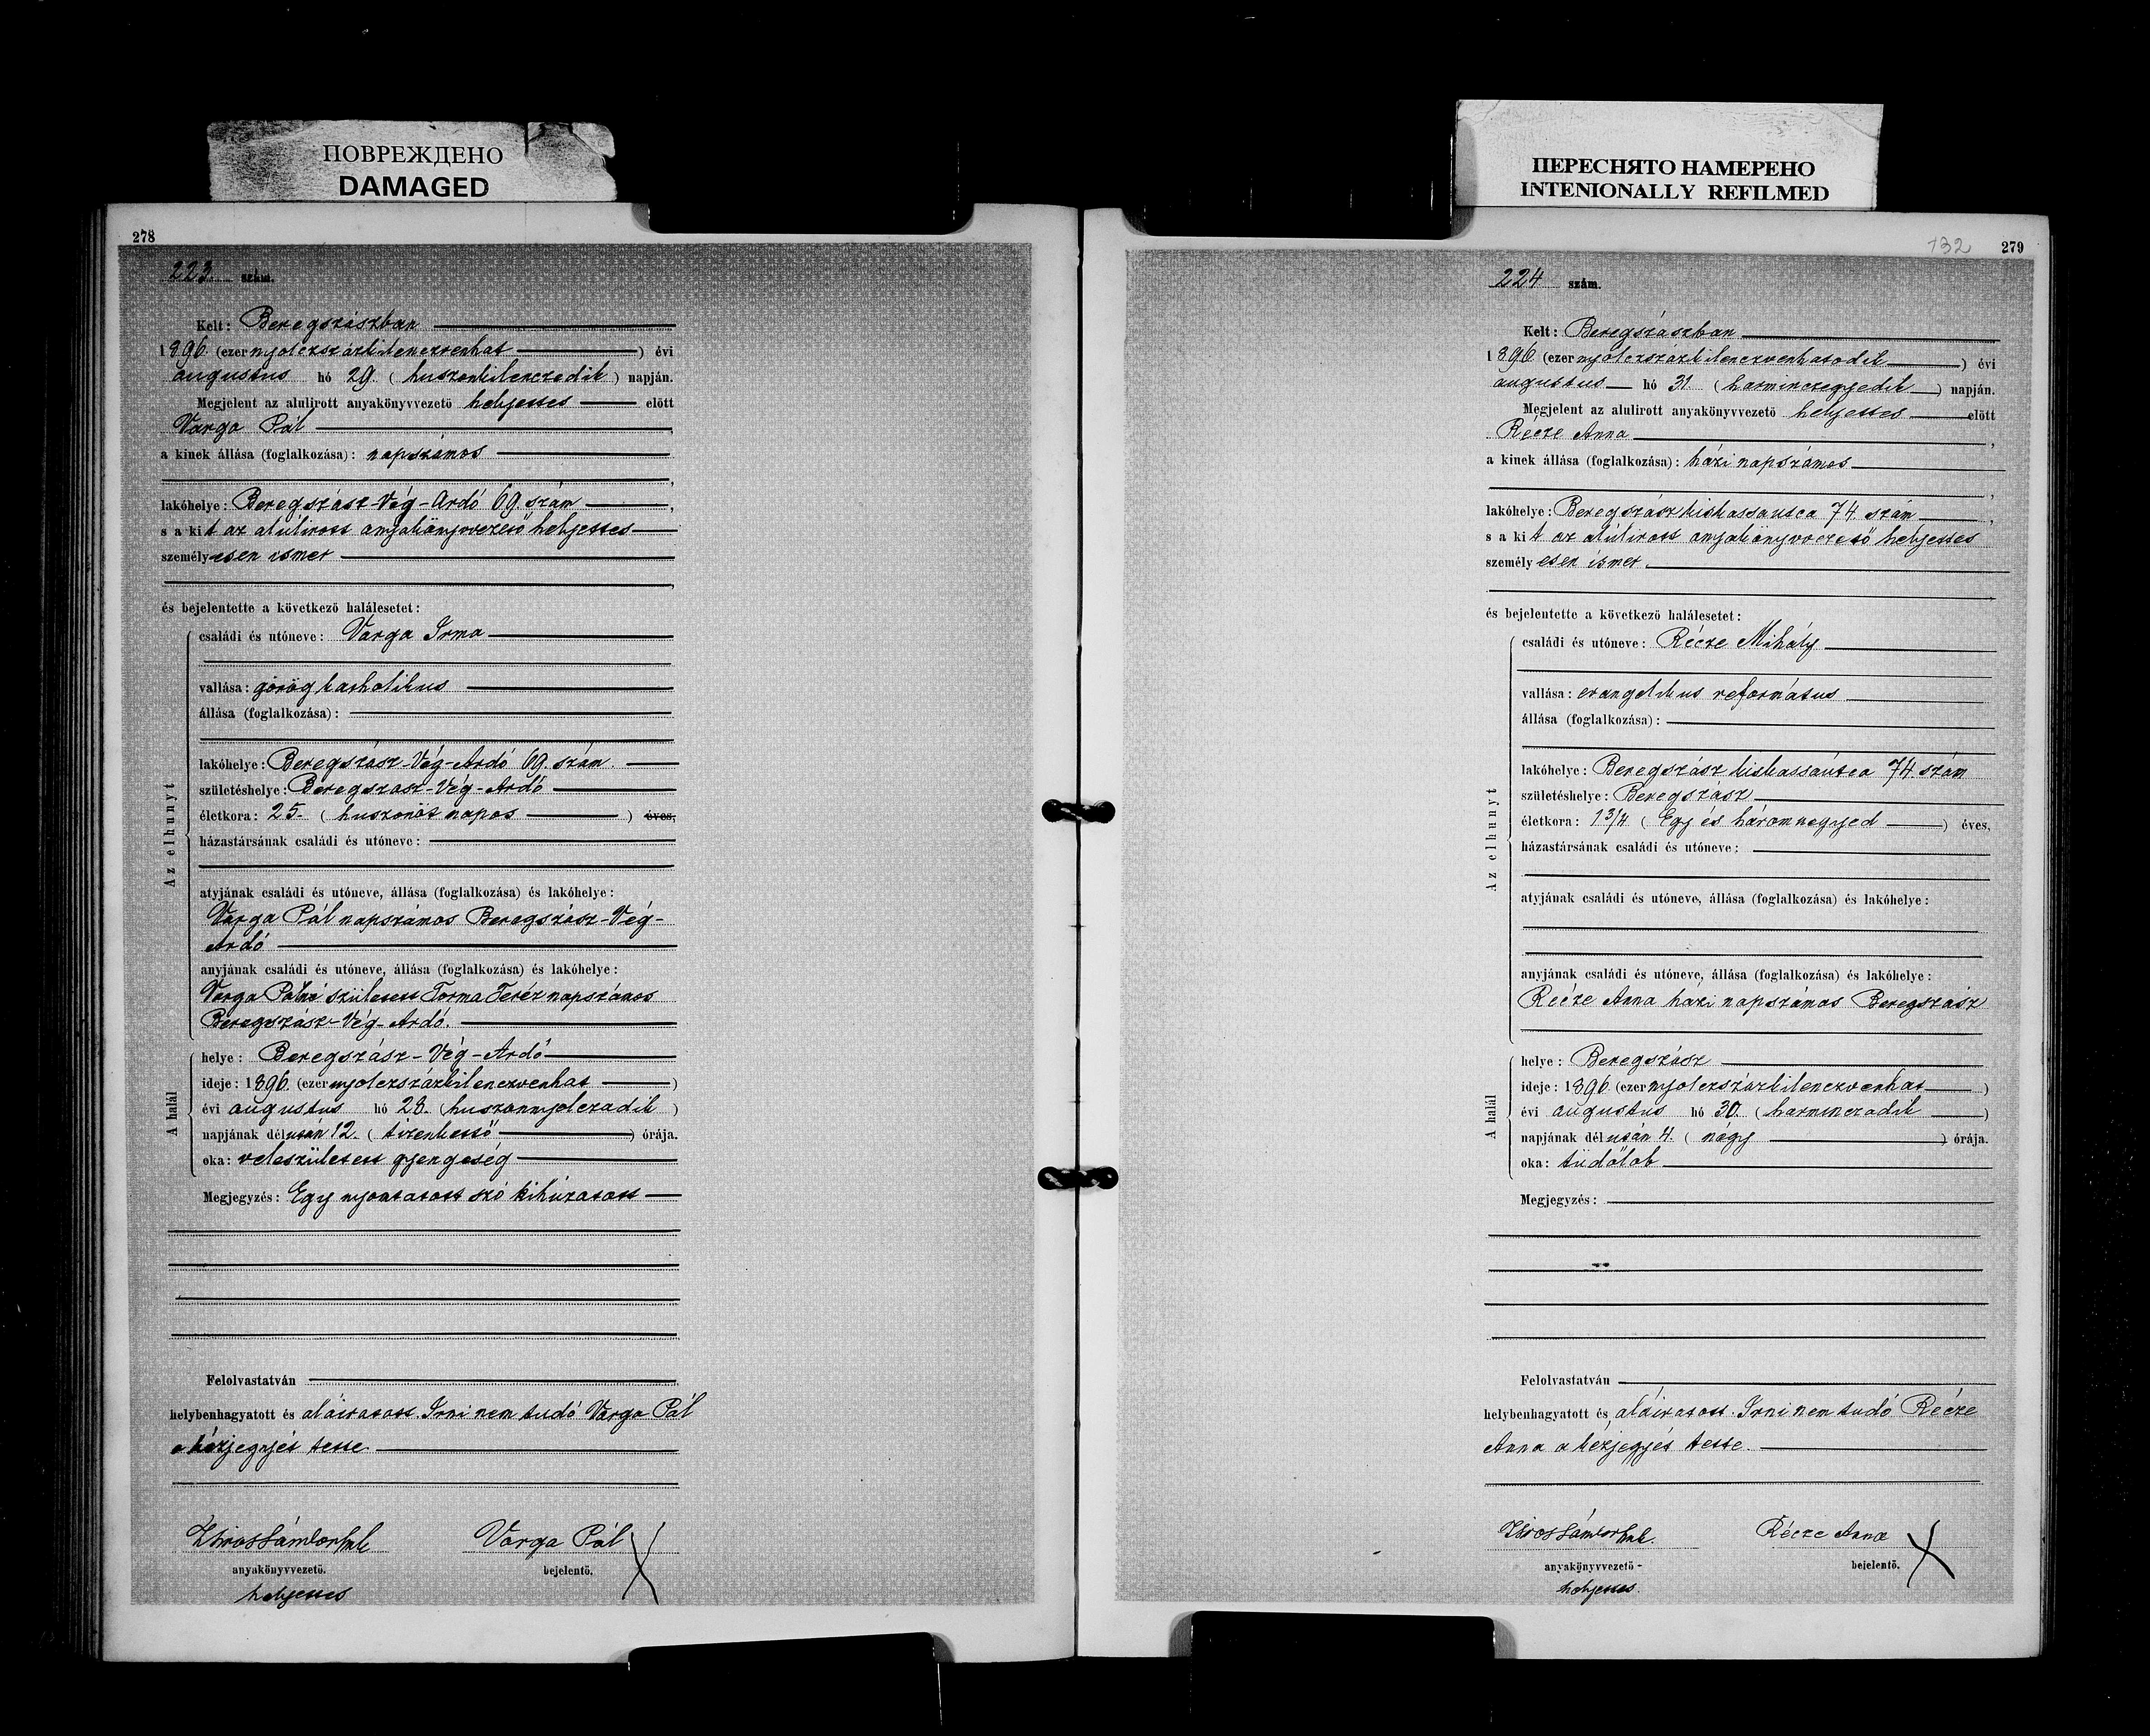 ПОВРЕЖДЕНО
DAMAGED
ПЕРЕСНЯТО НАМЕРЕНО
INTENIONALLY REFILMED
278
223 szám.
Kelt: Beregszászban
1896. (ezer nyolczszázkilenczvenhat) évi
augusztus hó 29. (huszonkilenczedik) napján.
Megjelent az alulirott anyakönyvvezető helyettes előtt
Varga Pál,
a kinek állása (foglalkozása): napszámos
,
lakóhelye: Beregszász-Vég-Ardó 69. szám,
s a kit az alúlirott anyakönyvvezető helyettes
személyesen ismer
,
és bejelentette a következő halálesetet:
Az elhunyt
családi és utóneve: Varga Irma
vallása: görög katholikus
állása (foglalkozása):
lakóhelye: Beregszász-Vég-Ardó 69. szám.
születéshelye: Beregszasz-Vég-Ardó
életkora: 25. (huszonöt napos) éves,
házastársának családi és utóneve:
atyjának családi és utóneve, állása (foglalkozása) és lakóhelye:
Varga Pál napszámos Beregszász-Vég-
Ardó
anyjának családi és utóneve, állása (foglalkozása) és lakóhelye:
Varga Pálné született Torma Teréz napszámos
Beregszász-Vég-Ardó.
A halál
helye: Beregszász-Vég-Ardó
ideje: 1896. (ezer nyolczszázkilenczvenhat)
évi augusztus hó 28. (huszonnyolczadik)
napjának délután 12. (tizenkettő) órája.
oka: veleszületett gyengeség
Megjegyzés: Egy nyomtatott szó kihúzatott
Felolvastatván
helybenhagyatott és aláiratott. Irni nem tudó Varga Pál
a kézjegyét tette
Varga Pál X
anyakönyvvezető. bejelentő.
helyettes
132 279
224 szám.
Kelt: Beregszászban
1896 (ezer nyolczszázkilenczvenhatodik) évi
augusztus hó 31 (harminczegyedik) napján.
Megjelent az alulirott anyakönyvvezető helyettes előtt
Récze Anna,
a kinek állása (foglalkozása): házi napszámos
,
lakóhelye: Beregszász kiskassautca 74. szám,
s a kit az alúlirott anyakönyvvezető helyettes
személyesen ismer.
,
és bejelentette a következő halálesetet:
Az elhunyt
családi és utóneve: Récze Mihály
vallása: evangelikus református
állása (foglalkozása):
lakóhelye: Beregszász kiskassaútca 74. szám
születéshelye: Beregszász
életkora: 1 3/4 (Egy és háromnegyed) éves,
házastársának családi és utóneve:
atyjának családi és utóneve, állása (foglalkozása) és lakóhelye:
anyjának családi és utóneve, állása (foglalkozása) és lakóhelye:
Récze Anna házi napszámos Beregszász
A halál
helye: Beregszász
ideje: 1896. (ezer nyolczszázkilenczvenhat)
évi augusztus hó 30. (harminczadik)
napjának délután 4. (négy) órája.
oka: tüdőlob
Megjegyzés:
Felolvastatván
helybenhagyatott és aláiratott. Irni nem tudó Récze
Anna a kézjegyét tette.
Récze Anna X
anyakönyvvezető- bejelentő.
helyettes.